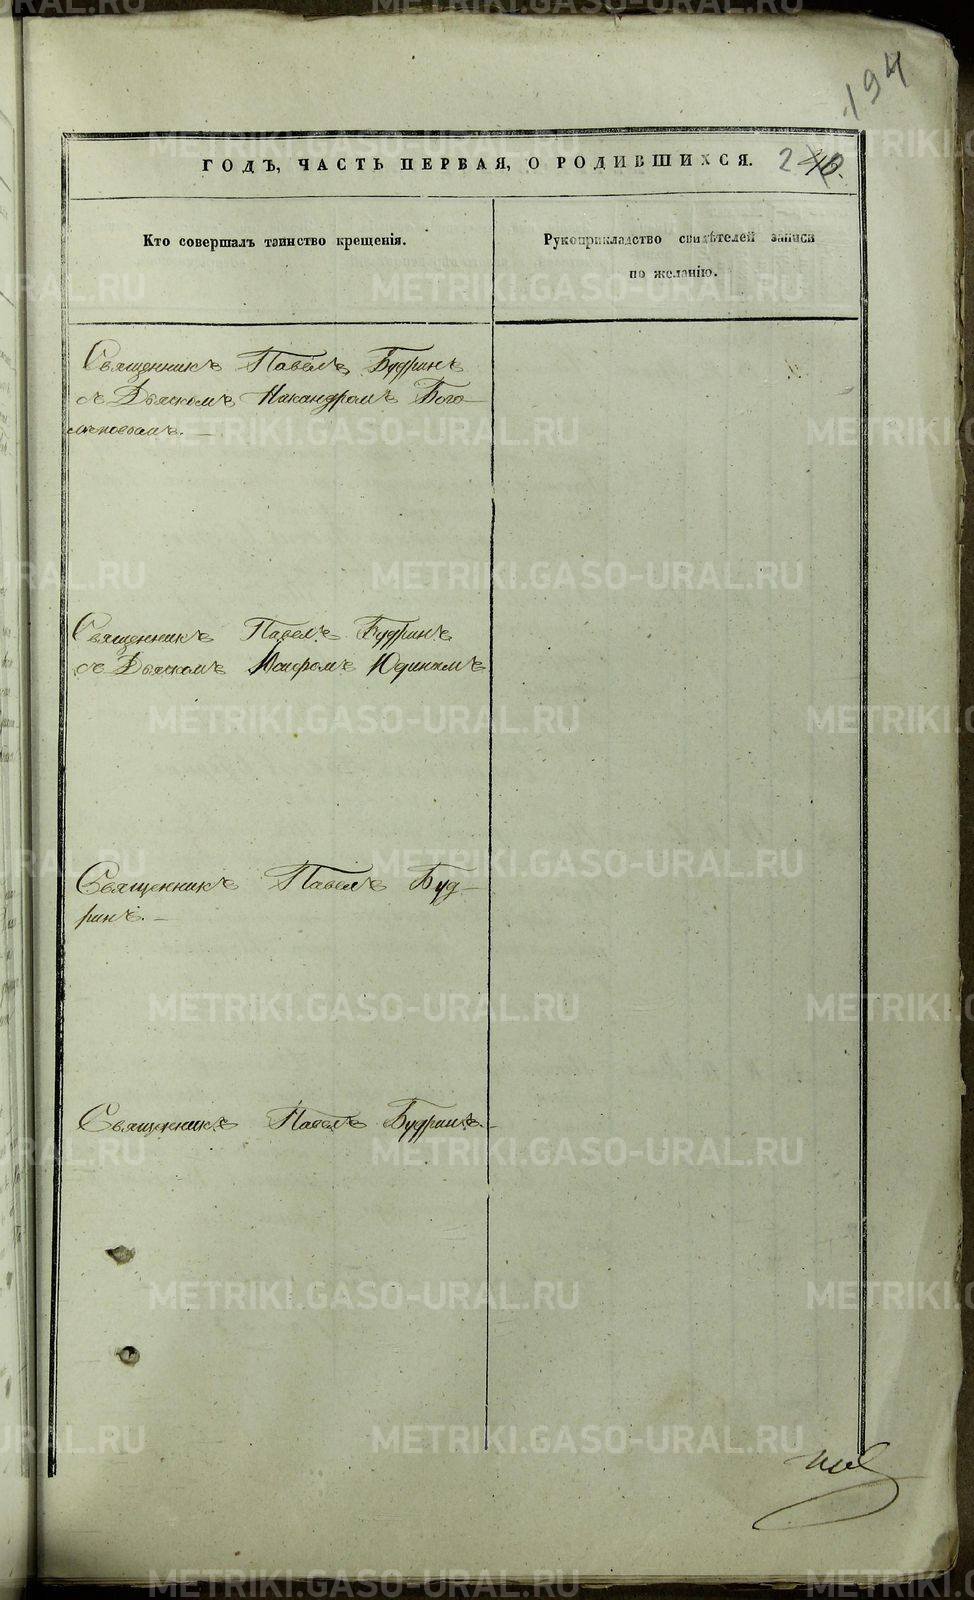 194
ГОДЪ, ЧАСТЬ ПЕРВАЯ, О РОДИВШИХСЯ.
Кто совершалъ таинство крещенія.
Рукоприкладство свидѣтелей записи
по желанію.
Священникъ Павелъ Будринъ
съ Дьякомъ Никандромъ Бого-
Священникъ Павелъ Будринъ
съ Дьякомъ Юдинымъ
Священникъ Павелъ Буд-
ринъ.
Священникъ Павелъ Будринъ.
METRIKI.GASO-URAL.RU